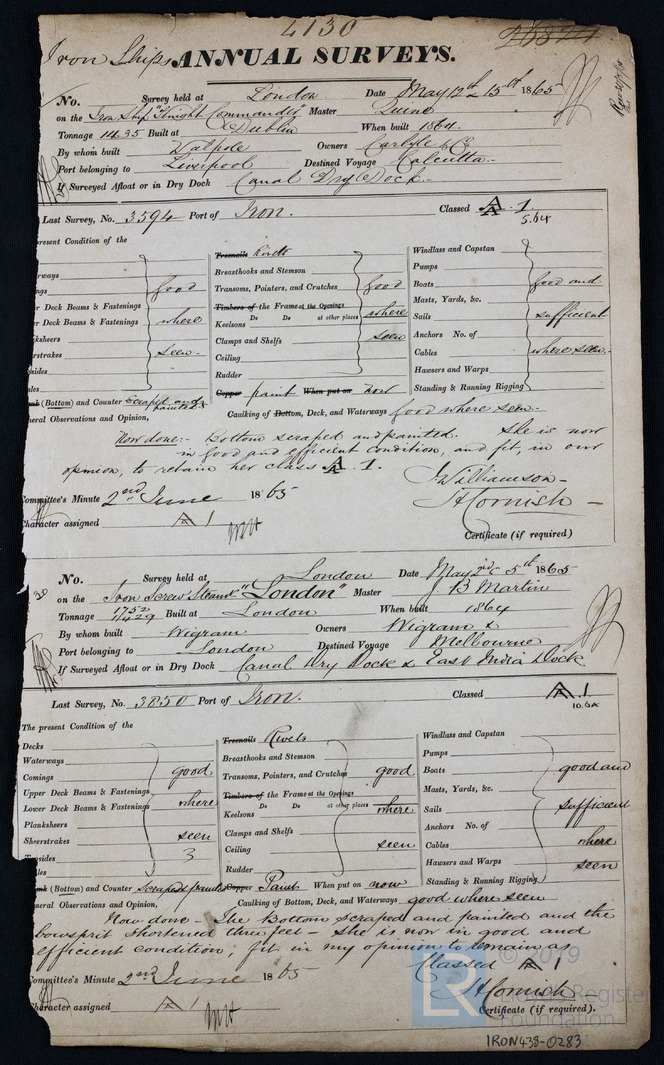 4130
Iron Ships ANNUAL SURVEYS.
No. Survey held at London Date May 12th & 15th 1865
on the Iron Ship "Knight Commander" Master Quine
Tonnage 1435 Built at Dublin When built 1864
By whom built Walpole Owners Carlyle & Co
Port belonging to Liverpool Destined Voyage Calcutta
If Surveyed Afloat or in Dry Dock Canal Dry Dock
Last Survey, No. 3594 Port of Iron. Classed A. 1.
5.64
present Condition of the
Treenails Rivets
Windlass and Capstan
Breasthooks and Stemson
Pumps
rways
Transoms, Pointers, and Crutches good
Boats good and
ngs good
Timbers of the Frame at the Openings
Masts, Yards, &c.
r Deck Beams & Fastenings
Do Do at other places where
Keelsons
Sails sufficient
er Deck Beams & Fastenings where
Clamps and Shelfs seen
Anchors No. of
ksheers
Ceiling
Cables where seen
rstrakes seen
Rudder
Hawsers and Warps
sides
Copper paint When put on now
Standing & Running Rigging
les
(Bottom) and Counter scraped and painted
Caulking of Bottom, Deck, and Waterways good where seen
neral Observations and Opinion,
Now done:- Bottom scraped and painted. She is now
in good and efficient condition, and fit, in our
opinion, to retain her class A 1.
J Williamson
H Cornish
Committee's Minute 2nd June 1865
Certificate (if required)
Character assigned A 1
No. Survey held at London Date May 2nd & 5th 1865
on the Iron Screw Steamr "London" Master B Martin
Tonnage 1752 1429 Built at London When built 1864
By whom built Wigram Owners Wigram &
Port belonging to London Destined Voyage Melbourne
If Surveyed Afloat or in Dry Dock Canal Dry Dock & East India Dock
Last Survey, No. 3850 Port of Iron. Classed A. 1
10.64
The present Condition of the
Decks
Treenails Rivets
Windlass and Capstan
Waterways
Breasthooks and Stemson
Pumps
Comings good
Transoms, Pointers, and Crutches good
Boats good and
Upper Deck Beams & Fastenings
Timbers of the Frame at the Openings
Masts, Yards, &c.
Lower Deck Beams & Fastenings where
Do Do at other places where
Keelsons
Sails sufficient
Planksheers
Clamps and Shelfs
Anchors No. of
Sheerstrakes seen
Ceiling seen
Cables where
Topsides
Rudder
Hawsers and Warps seen
les
Standing & Running Rigging
(Bottom) and Counter Scraped & painted Copper Paint When put on now
neral Observations and Opinion, Caulking of Bottom, Deck, and Waterways good where seen
Now done - The Bottom scraped and painted and the
bowsprit shortened three feet - she is now in good and
efficient condition, fit in my opinion to remain as
Classed A 1
H Cornish
Committee's Minute 2nd June 1865
Certificate (if required).
Character assigned A 1
© 2019
LR
Lloyd's Register
Foundation
IRON438-0283